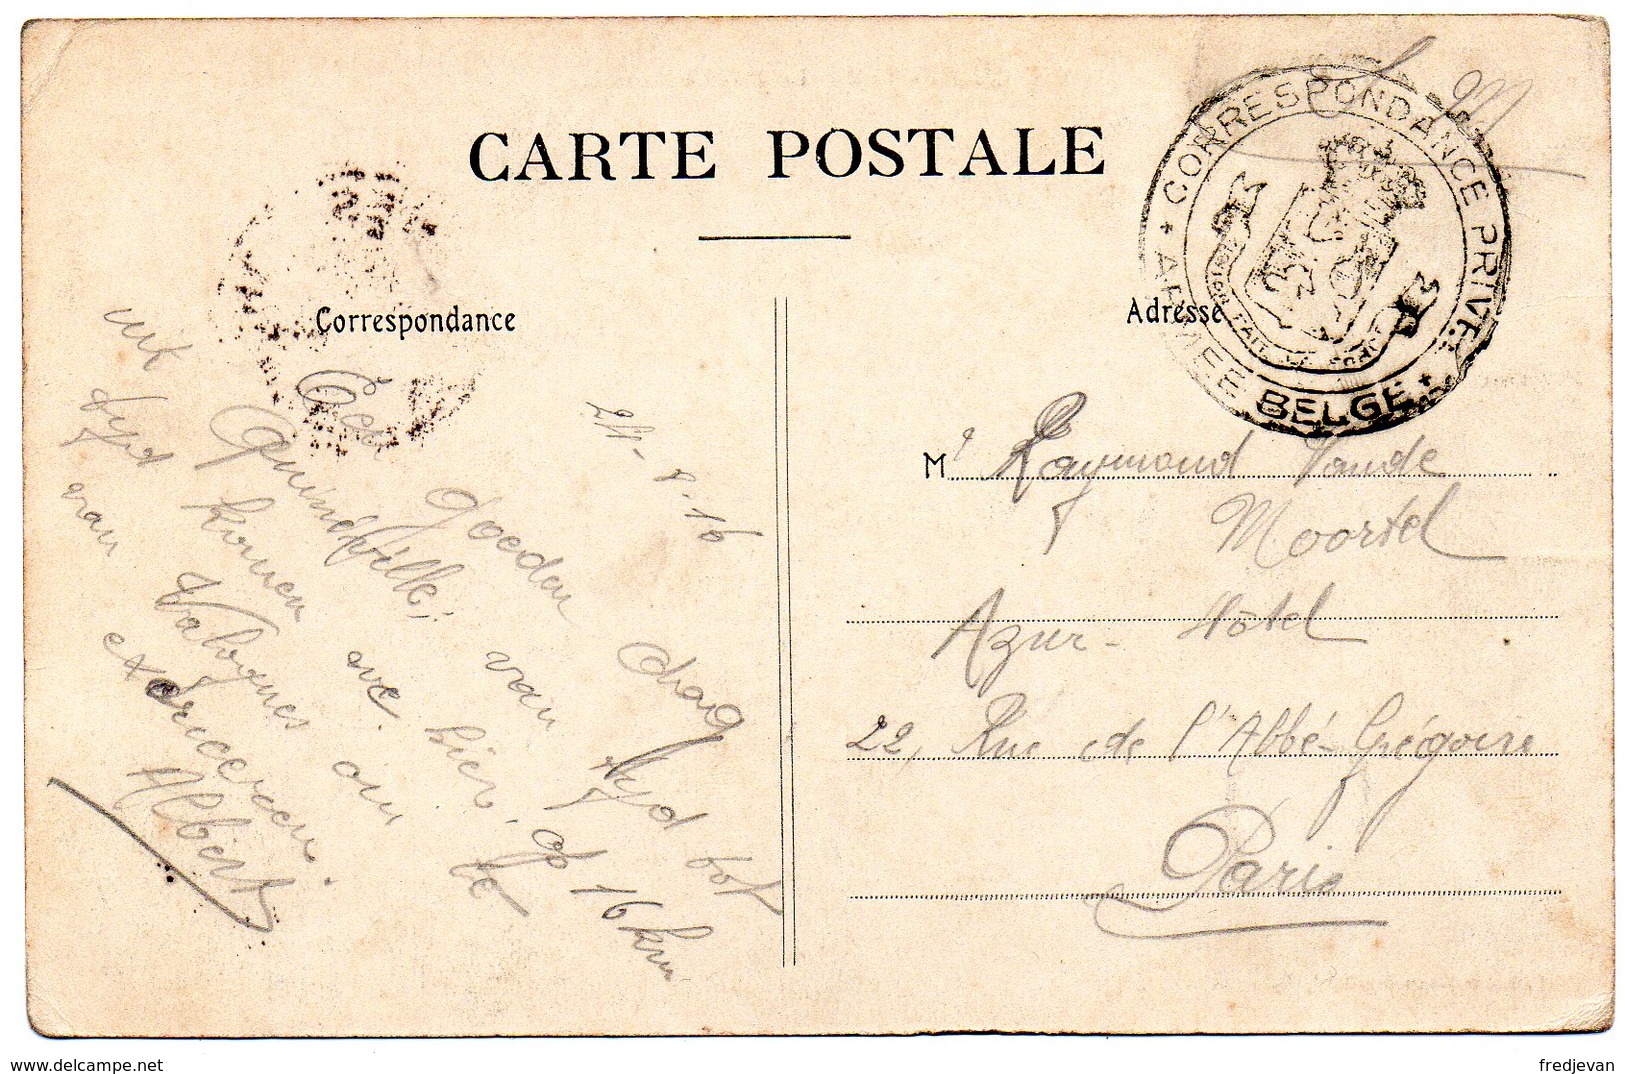 CARTE POSTALE
Correspondance
Adresse
CORRESPONDANCE PRIVEE
* ARMEE BELGE *
L'UNION FAIT LA FORCE
S. M.
24-8-16
Een Goeden dag
uit Quinéville, van tyd tot
tyd komen we hier, op 16 km
van Valognes om te
exerceeren.
Albert
Mr Raymond Vande
Moortel
Azur-Hôtel
22, Rue de l'Abbé-Grégoire
Paris
delcampe.net
fredjevan